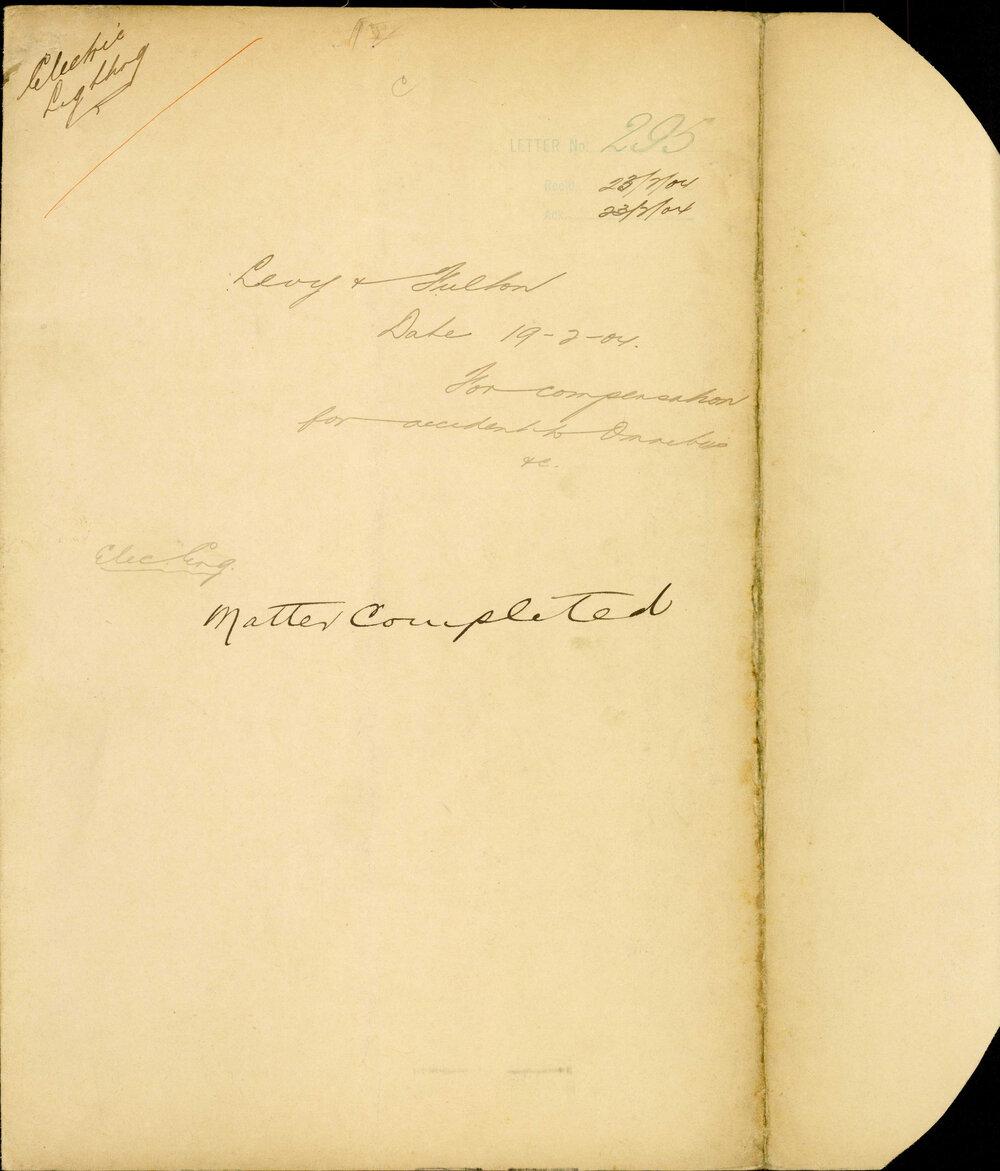 Electric
Lighting
C
LETTER No. 295
Recd. 23/2/04
Ack. 23/2/04
Levy & Fulton
Date 19-2-04.
For compensation
for accident to Omnibus
&c.
Elec. Eng.
Matter Completed